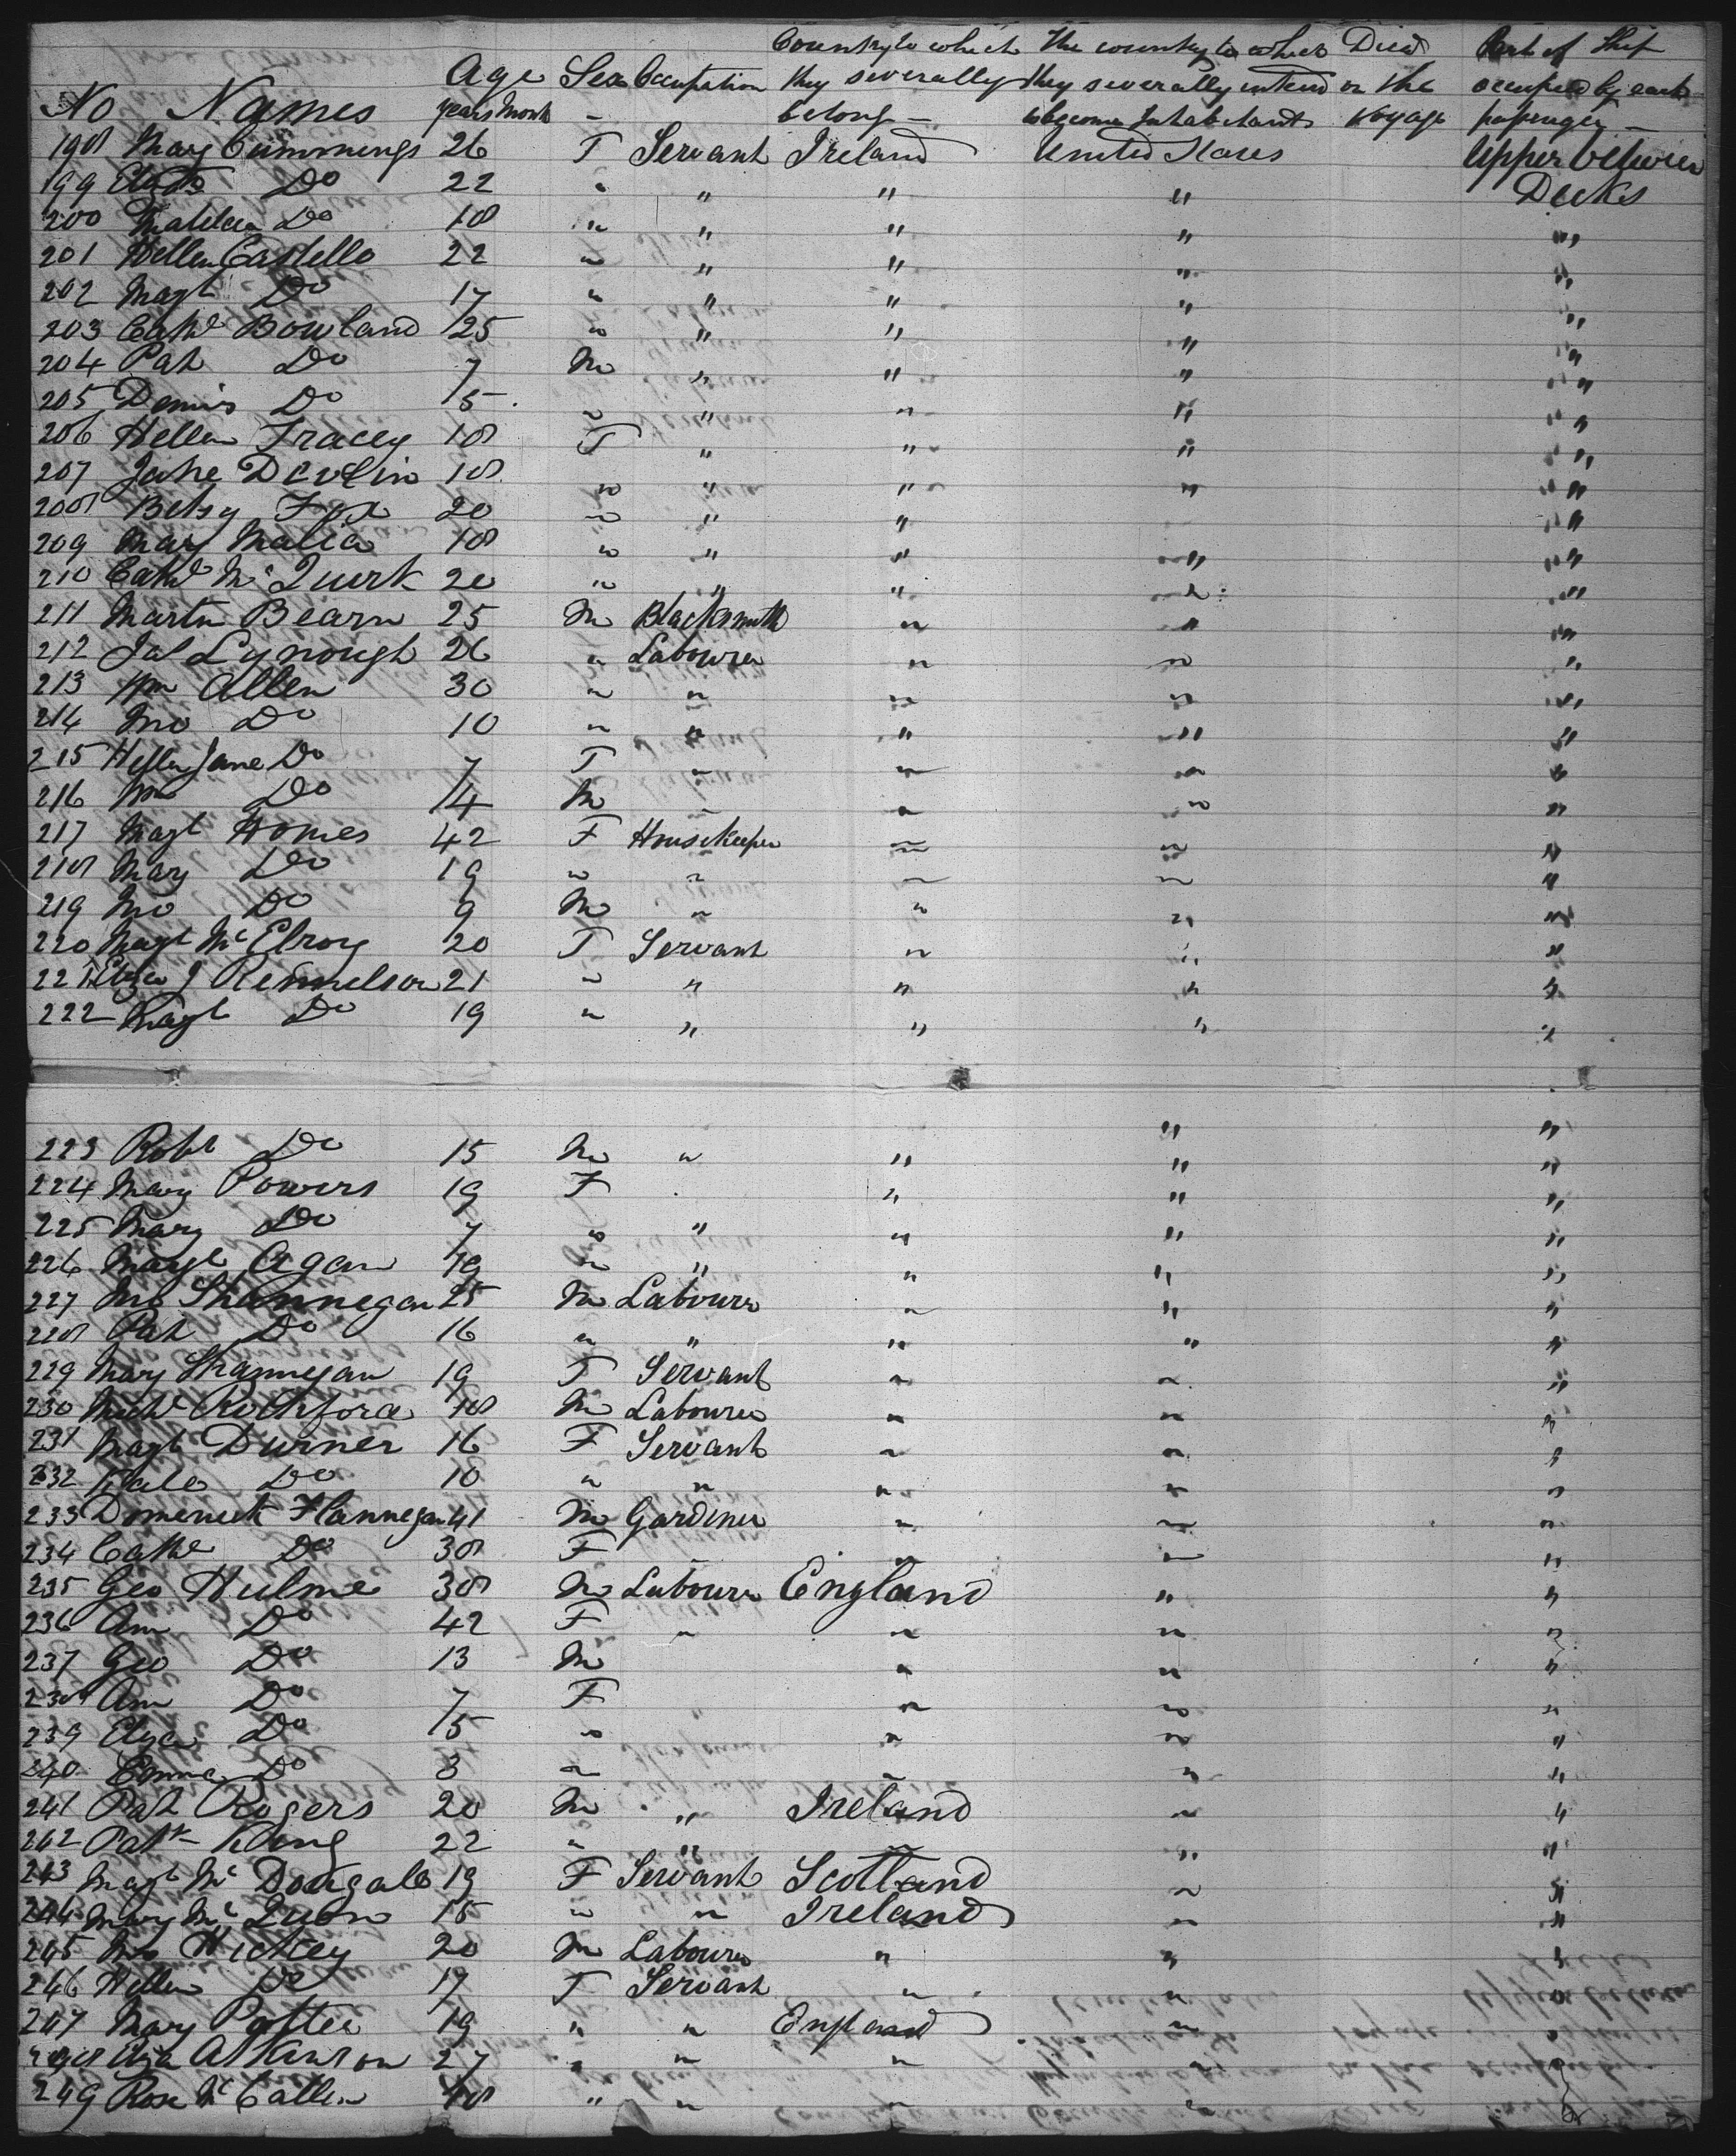 No Names Age years Month Sex Occupation Country to which they severally belong The country to which they severally intend to become Inhabitants Died on the Voyage Part of Ship occupied by each passenger
198 Mary Cummings 26 F Servant Ireland United States Upper between
199 Eliza Do 22 " " " " Decks
200 Do 18 " " " " "
201 Hellen Castello 22 " " " " "
202 Magt Do 17 " " " " "
203 Cathe Bowland 25 " " " " "
204 Pat Do 7 M " " " "
205 Dennis Do 5 " " " " "
206 Hellen Tracey 18 F " " " "
207 Jane Devlin 18 " " " " "
208 Betsy Fox 20 " " " " "
209 Mary Malia 18 " " " " "
210 Cathe Mc Quirk 20 " " " " "
211 Martin Bearn 25 M Blacksmith " " "
212 Jas Lynough 26 " Labourer " " "
213 Wm Allen 30 " " " " "
214 Jno Do 10 " " " " "
215 Hellen Jane Do 7 F " " " "
216 Wm Do 4 M " " " "
217 Magt Homes 42 F Housekeeper " " "
218 Mary Do 19 " " " " "
219 Jno Do 9 M " " " "
220 Magt Mc Elroy 20 F Servant " " "
221 Eliza J Rennelson 21 " " " " "
222 Magt Do 19 " " " " "
" "
223 Robt Do 15 M " " " "
224 Mary Powers 19 F " " "
225 Mary Do 7 " " " " "
226 Magt Agan 19 " " " " "
227 Jno Shannegan 25 M Labourer " " "
228 Pat Do 16 " " " " "
229 Mary Shannegan 19 F Servant " " "
230 Michl Rochford 18 M Labourer " " "
231 Magt Durner 16 F Servant " " "
232 Kate Do 10 " " " " "
233 Domenick Flannegan 41 M Gardener " " "
234 Cathe Do 38 F " " " "
235 Geo Hulme 38 M Labourer England " "
236 Ann Do 42 F " " " "
237 Geo Do 13 M " " "
238 Ann Do 7 F " " "
239 Eliza Do 5 " " " "
240 Emma Do 3 " " " "
241 Pat Rogers 20 M " Ireland " "
242 Patk King 22 " " " " "
243 Magt Mc Dougale 19 F Servant Scotland " "
244 Mary Mc Quon 15 " " Ireland " "
245 Jno Hickey 20 M Labourer " " "
246 Hellen Do 17 F Servant " " "
247 Mary Potter 19 " " England " "
248 Eliza Atkinson 27 " " " " "
249 Rose Mc Callen 18 " " " " "